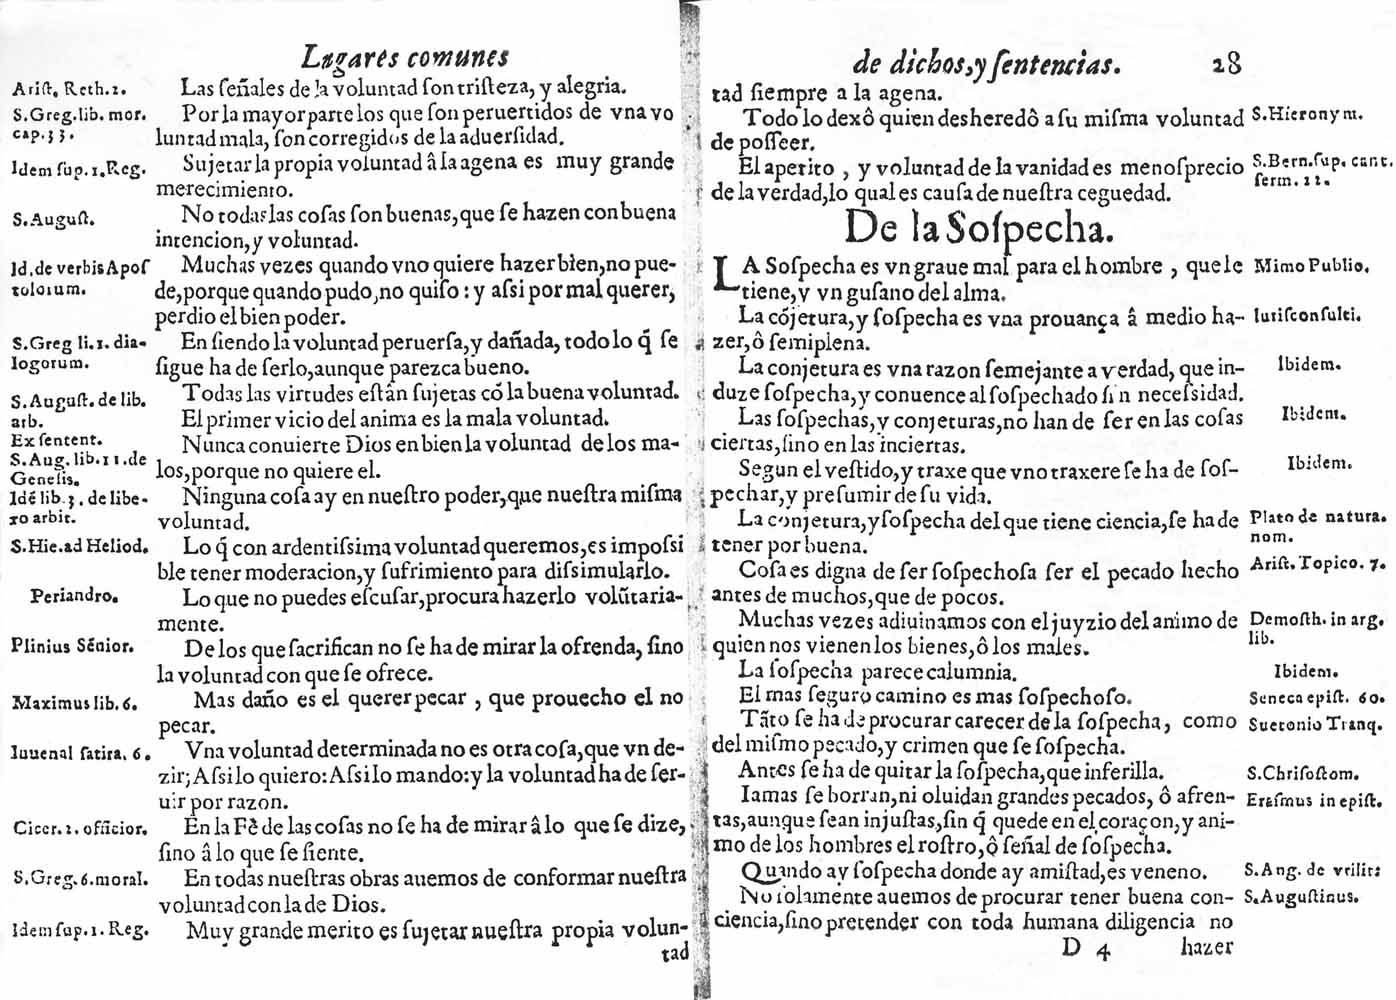 Lugares comunes
Arist. Reth. 2.
Las señales de la voluntad son tristeza, y alegria.
S. Greg. lib. mor.
cap. 33.
Por la mayor parte los que son peruertidos de vna vo
luntad mala, son corregidos de la aduersidad.
Idem sup. 1. Reg.
Sujetar la propia voluntad â la agena es muy grande
merecimiento.
S. August.
No todas las cosas son buenas, que se hazen con buena
intencion, y voluntad.
Id. de verbis Apos
tolorum.
Muchas vezes quando vno quiere hazer bien, no pue-
de, porque quando pudo, no quiso: y assi por mal querer,
perdio el bien poder.
S. Greg li. 1. dia-
logorum.
En siendo la voluntad peruersa, y dañada, todo lo q̃ se
sigue ha de serlo, aunque parezca bueno.
S. August. de lib.
arb.
Todas las virtudes estân sujetas cõ la buena voluntad.
El primer vicio del anima es la mala voluntad.
Ex sentent.
S. Aug. lib. 11. de
Genesis.
Nunca conuierte Dios en bien la voluntad de los ma-
los, porque no quiere el.
Idẽ lib. 3. de libe-
ro arbit.
Ninguna cosa ay en nuestro poder, que nuestra misma
voluntad.
S. Hie. ad Heliod.
Lo q̃ con ardentissima voluntad queremos, es impossi
ble tener moderacion, y sufrimiento para dissimularlo.
Periandro.
Lo que no puedes escusar, procura hazerlo volũtaria-
mente.
Plinius Sénior.
De los que sacrifican no se ha de mirar la ofrenda, sino
la voluntad con que se ofrece.
Maximus lib. 6.
Mas daño es el querer pecar, que prouecho el no
pecar.
Iuuenal satira. 6.
Vna voluntad determinada no es otra cosa, que vn de-
zir; Assi lo quiero: Assi lo mando: y la voluntad ha de ser-
uir por razon.
Cicer. 2. officior.
En la Fè de las cosas no se ha de mirar â lo que se dize,
sino â lo que se siente.
S. Greg. 6. moral.
En todas nuestras obras auemos de conformar nuestra
voluntad con la de Dios.
Idem sup. 1. Reg.
Muy grande merito es sujetar nuestra propia volun-
tad
de dichos, y sentencias. 28
tad siempre a la agena.
Todo lo dexô quien desheredô a su misma voluntad
de posseer.
S. Hieronym.
El apetito, y voluntad de la vanidad es menosprecio
de la verdad, lo qual es causa de nuestra ceguedad.
S. Bern. sup. cant.
serm. 22.
De la Sospecha.
LA Sospecha es vn graue mal para el hombre, que le
tiene, y vn gusano del alma.
Mimo Publio.
La cõjetura, y sospecha es vna prouança â medio ha-
zer, ô semiplena.
Iurisconsulti.
La conjetura es vna razon semejante a verdad, que in-
duze sospecha, y conuence al sospechado sin necessidad.
Ibidem.
Las sospechas, y conjeturas, no han de ser en las cosas
ciertas, sino en las inciertas.
Ibidem.
Segun el vestido, y traxe que vno traxere se ha de sos-
pechar, y presumir de su vida.
Ibidem.
La conjetura, y sospecha del que tiene ciencia, se ha de
tener por buena.
Plato de natura.
nom.
Cosa es digna de ser sospechosa ser el pecado hecho
antes de muchos, que de pocos.
Arist. Topico. 7.
Muchas vezes adiuinamos con el juyzio del animo de
quien nos vienen los bienes, ô los males.
Demosth. in arg.
lib.
La sospecha parece calumnia.
Ibidem.
El mas seguro camino es mas sospechoso.
Seneca epist. 60.
Tãto se ha de procurar carecer de la sospecha, como
del mismo pecado, y crimen que se sospecha.
Suetonio Tranq.
Antes se ha de quitar la sospecha, que inferilla.
S. Chrisostom.
Iamas se borran, ni oluidan grandes pecados, ô afren-
tas, aunque sean injustas, sin q̃ quede en el coraçon, y ani-
mo de los hombres el rostro, ô señal de sospecha.
Erasmus in epist.
Quando ay sospecha donde ay amistad, es veneno.
S. Ang. de vtilit:
No solamente auemos de procurar tener buena con-
ciencia, sino pretender con toda humana diligencia no
S. Augustinus.
D 4 hazer